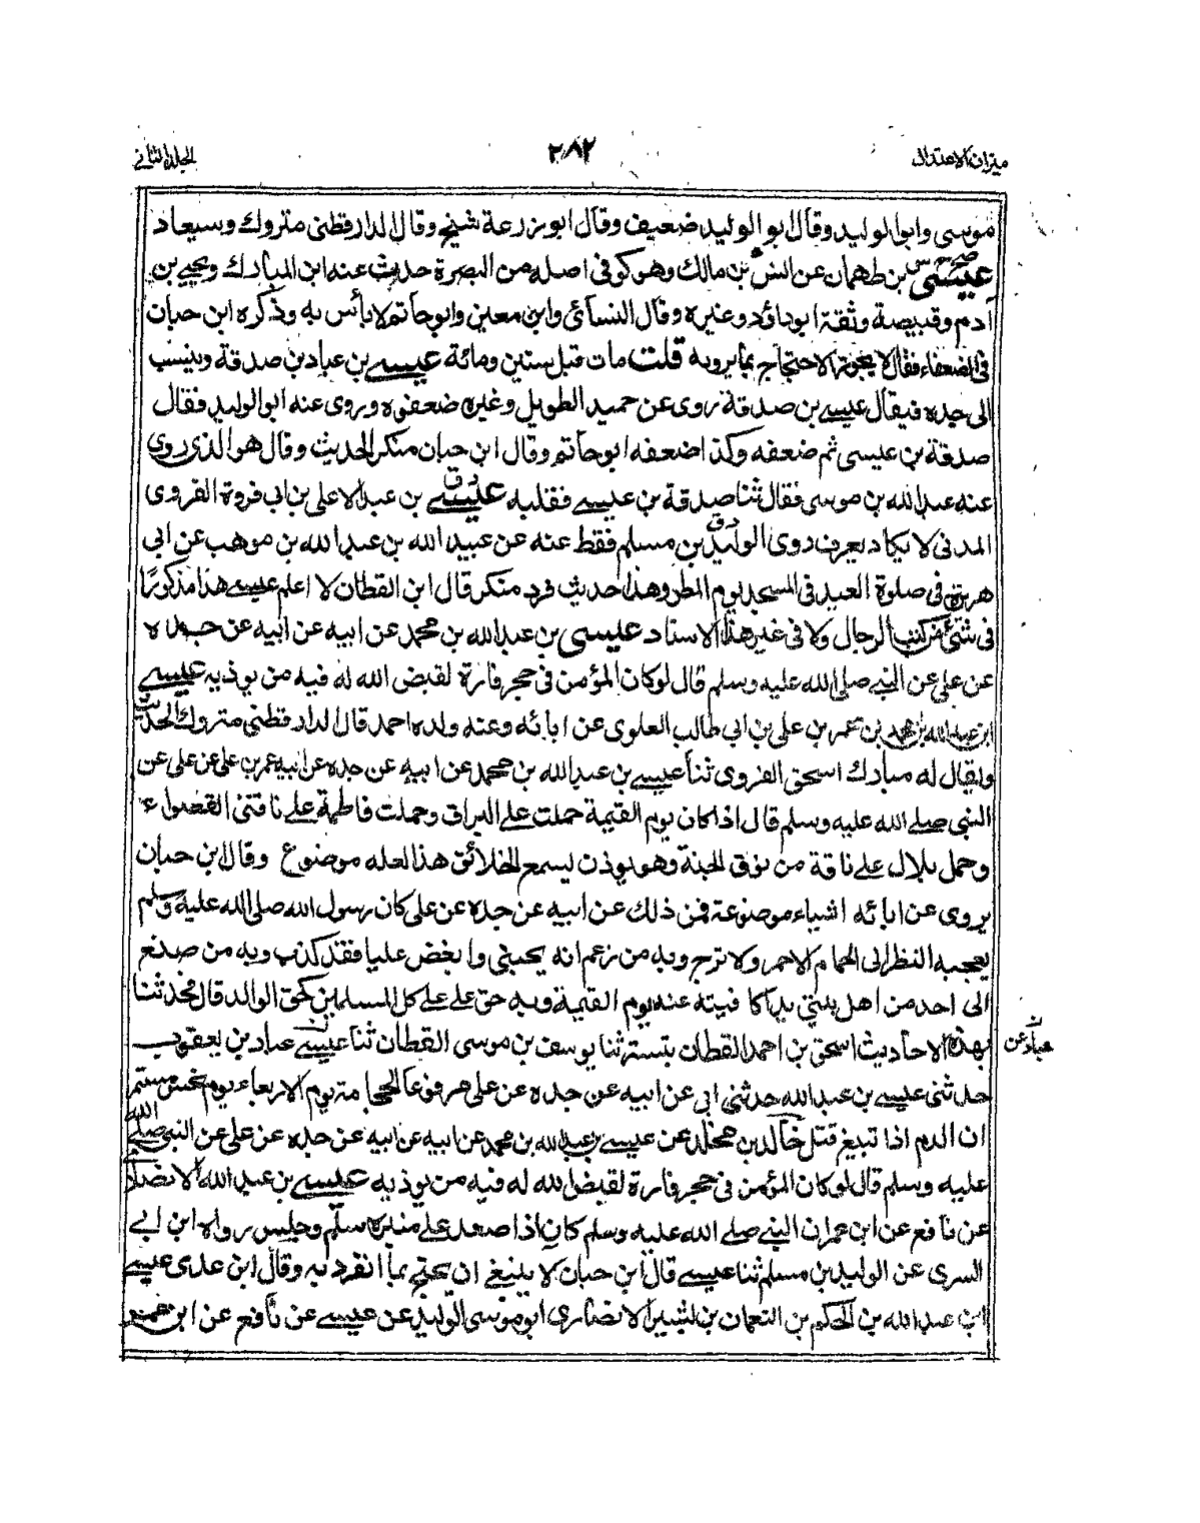 ميزان الاعتدال
٢٨٢
الجلد الثاني
موسى وابو الوليد وقال بو الوليد ضعيف وقال ابو زرعة شيخ وقال الدارقطنى متروك وسيعاد
عيسى بن طهمان عن انس بن مالك وهو كوفى اصله من البصرة حديث عنه ابن المبارك ويحيى بن
آدم وقبيصة وثقة ابو داؤد وغيره وقال النسائى وابن معين وابو حاتم لا بأس به وذكره ابن حبان
فى الضعفاء فقال لا يجوز الاحتجاج بما يرويه قلت مات قبل ستين ومائة عيسى بن عباد بن صدقة وينسب
الى جده فيقال عيسى بن صدقة روى عن حميد الطويل وغيره ضعفوه وروى عنه ابو الوليد فقال
صدقة بن عيسى ثم ضعفه وكذا ضعفه ابو حاتم وقال ابن حبان منكر الحديث وقال هو الذى روى
عنه عبد الله بن موسى فقال ثنا صدقة بن عيسى فقلبه عيسى بن عبد الاعلى بن ابى فروة الفروى
المدنى لا يكاد يعرف روى الوليد بن مسلم فقط عنه عن عبيد الله بن عبد الله بن موهب عن ابى
هريرة فى صلوة العيد فى المسجد يوم المطر وهذا حديث فرد منكر قال ابن القطان لا اعلم عيسى هذا مذكورًا
فى شئ من كتب الرجال ولا فى غير هذا الاسناد عيسى بن عبد الله بن محمد عن ابيه عن ابيه عن جده
عن على عن النبى صلى الله عليه وسلم قال لو كان المؤمن فى حجر فارة لقبض الله له فيه من يوذيه عيسى
ابن عبد الله بن محمد بن عمر بن على بن ابى طالب العلوى عن ابائه وعنه ولده احمد قال الدارقطنى متروك الحديث
ويقال له مبارك اسحق الفروى ثنا عيسى بن عبد الله بن محمد عن ابيه عن جده عن ابيه عمر بن على عن على عن
النبى صلى الله عليه وسلم قال اذا كان يوم القيمة حملت على البراق وحملت فاطمة على ناقتى القصواء
وحمل بلال على ناقة من نوق الجنة وهو يوذن يسمع الخلائق هذا لعله موضوع وقال ابن حبان
يروى عن ابائه اشياء موضوعة فمن ذلك عن ابيه عن جده عن على كان رسول الله صلى الله عليه وسلم
يعجبه النظر الى الحمام الاحمر والاترج وبه من زعم انه يحبنى وابغض عليا فقد كذب وبه من صنع
الى احد من اهل بيتى يدا كافيته عنه يوم القيمة وبه حق على على كل المسلمين كحق الوالد قال محمد ثنا
بهذه الاحاديث اسحق بن احمد القطان بتستر ثنا يوسف بن موسى القطان ثنا عيسى عباد بن يعقوب
عبادعن
حدثنى عيسى بن عبد الله حدثنى ابى عن ابيه عن جده عن على مرفوعا الحجامة يوم الاربعاء يوم نحس مستمر
ان الدم اذا تبيغ قتل خالد بن مخلد عن عيسى بن عبد الله بن محمد عن ابيه عن ابيه عن جده عن على عن النبى صلى الله
عليه وسلم قال لو كان المؤمن فى حجر فارة لقبض الله له فيه من يوذيه عيسى بن عبد الله الانصارى
عن نافع عن ابن عمران النبى صلى الله عليه وسلم كان اذا صعد على منبره سلم وجلس رواه ابن ابى
السرى عن الوليد بن مسلم ثنا عيسى قال ابن حبان لا ينبغى ان يحتج بما انفرد به وقال ابن عدى عيسى
ابن عبد الله بن الحكم بن النعمان بن بشير الانصارى ابو موسى الوليد عن عيسى عن نافع عن ابن عمر